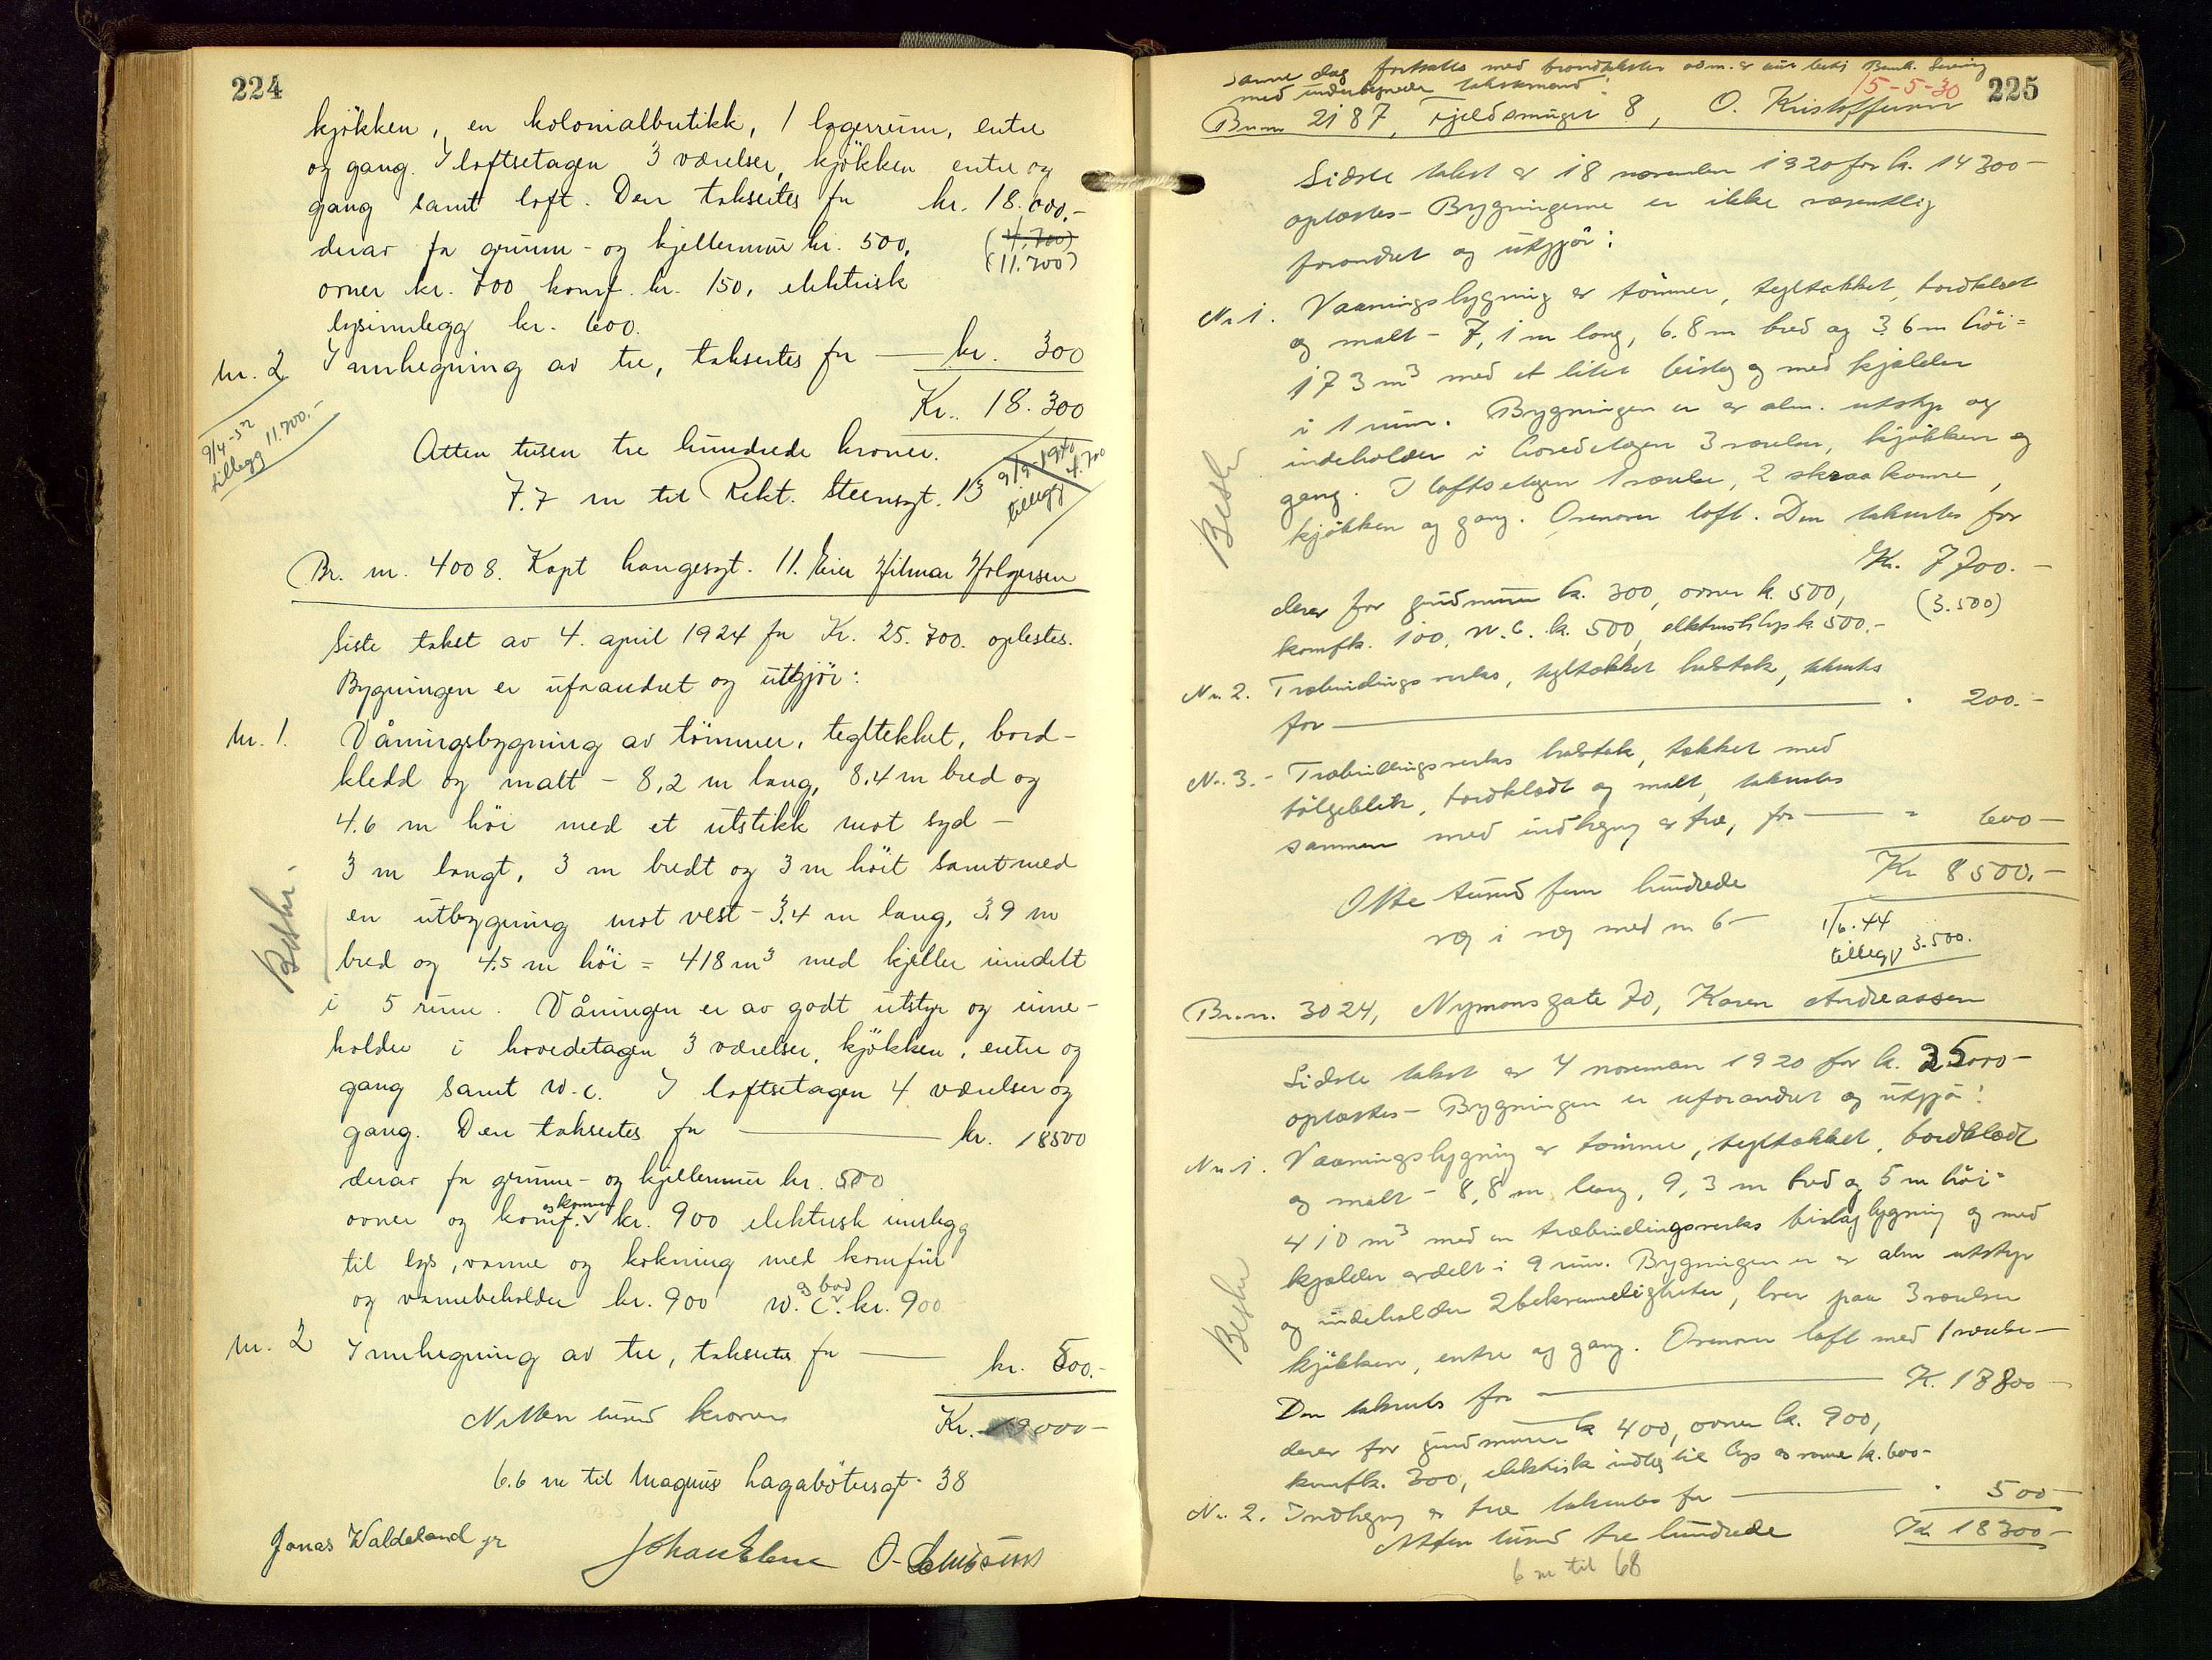 224
kjökken, en kolonialbutikk, 1 lagerrum, entre
og gang. I loftsetagen 3 værelser, kjökken entre og
gang samt loft. Den takseres for kr. 18.000.-
derav for grunn- og kjellermur kr. 500, (4.700)
ovner kr. 700 komf. kr. 150, elektrisk (11.700)
lysinnlegg kr. 600.
Nr. 2 Innhegning av tre, takseres for kr. 300
Kr. 18.300
9/4-52
tillegg 11.700.-
Atten tusen tre hundrede kroner.
7.7 m til Rekt. Steensgt. 13
9/9-1940
tillegg 4.700
Br. nr. 4008. Kapt Langesgt. 11. Eier Hilmar Holgersen
Siste takst av 4. april 1924 for Kr. 25.700. oplestes.
Bygningen er uforandret og utgjör:
Nr. 1. Våningsbygning av tömmer, tegltekket, bord-
kledd og malt - 8,2 m lang, 8,4 m bred og
4.6 m höi med et utstikk mot syd -
3 m langt, 3 m bredt og 3 m höit samt med
en utbygning mot vest - 3.4 m lang, 3.9 m
bred og 4.5 m höi = 418 m³ med kjeller inndelt
i 5 rum. Våningen er av godt utstyr og inne-
holder i hovedetagen 3 værelser, kjökken, entre og
gang samt w.c. I loftsetagen 4 værelser og
gang. Den takseres for kr. 18500
derav for grunn- og kjellermur kr. 500
ovner og komf. kr. 900 elektrisk innlegg
til lys, varme og kokning med komfür
og varmebeholder kr. 900 w.c. og bad kr. 900
Nr. 2 Innhegning av tre, takseres for kr. 500.-
Nitten tusind kroner Kr. 19000-
6.6 m til Magnus Lagabötersgt. 38
Jonas Waldeland jr
225
Samme dag fortsattes med brandtakster
med undertegnede takstmænd
15-5-30
Br.nr. 2187, Fjeldsmuget 8, O. Kristoffersen
Sidste takst av 18 november 1920 for kr. 14300-
oplæstes- Bygningerne er ikke væsentlig
forandret og utgjör:
Nr 1. Vaaningsbygning av tömmer, tegltækket, bordklædt
og malt - 7,1 m lang, 6.8 m bred og 3.6 m höi=
173 m³ med et litet bislag og med kjælder
i 1 rum. Bygningen er av alm. utstyr og
indeholder i hovedetagen 3 værelser, kjökken og
gang. I loftsetagen 1 værelse, 2 skraakamre,
kjökken og gang. Ovenover loft. Den takseres for
Kr. 7700.-
derav for grundmuren kr. 300, ovner kr. 500, (3.500)
komfk. 100, W.C. kr. 500, elektrisk lys kr. 500.-
Nr. 2. Træbindingsverks, tegltækket halvtak, takseres
for 200.-
Nr. 3.- Træbindingsverks halvtak, tækket med
bölgeblik, bordklædt og malt, takseres
sammen med indhegning av træ, for 600-
Kr 8500.-
Otte tusind fem hundrede
væg i væg med nr. 6-
1/6.44
tillegg 3.500.
Br.nr. 3024, Nymansgate 70, Karen Andreassen
Sidste takst av 4 november 1920 for kr. 35000-
oplæstes- Bygningen er uforandret og utgjör:
Nr 1. Vaaningsbygning av tömmer, tegltækket, bordklædt
og malt - 8,8 m lang, 9,3 m bred og 5 m höi=
410 m³ med en træbindingsverks bislagbygning og med
kjælder avdelt i 9 rum. Bygningen er av alm utstyr
og indeholder 2 bekvemmeligheter, hver paa 3 værelser
kjökken, entre og gang. Ovenover loft med 1 værelse-
Den takseres for K. 17800-
derav for grundmuren kr 400, ovner kr. 900,
komfk. 300, elektrisk indlæg til lys og varme kr. 600-
Nr. 2. Indhegning av træ takseres for 500-
Atten tusind tre hundrede Kr 18300-
6 m til 68